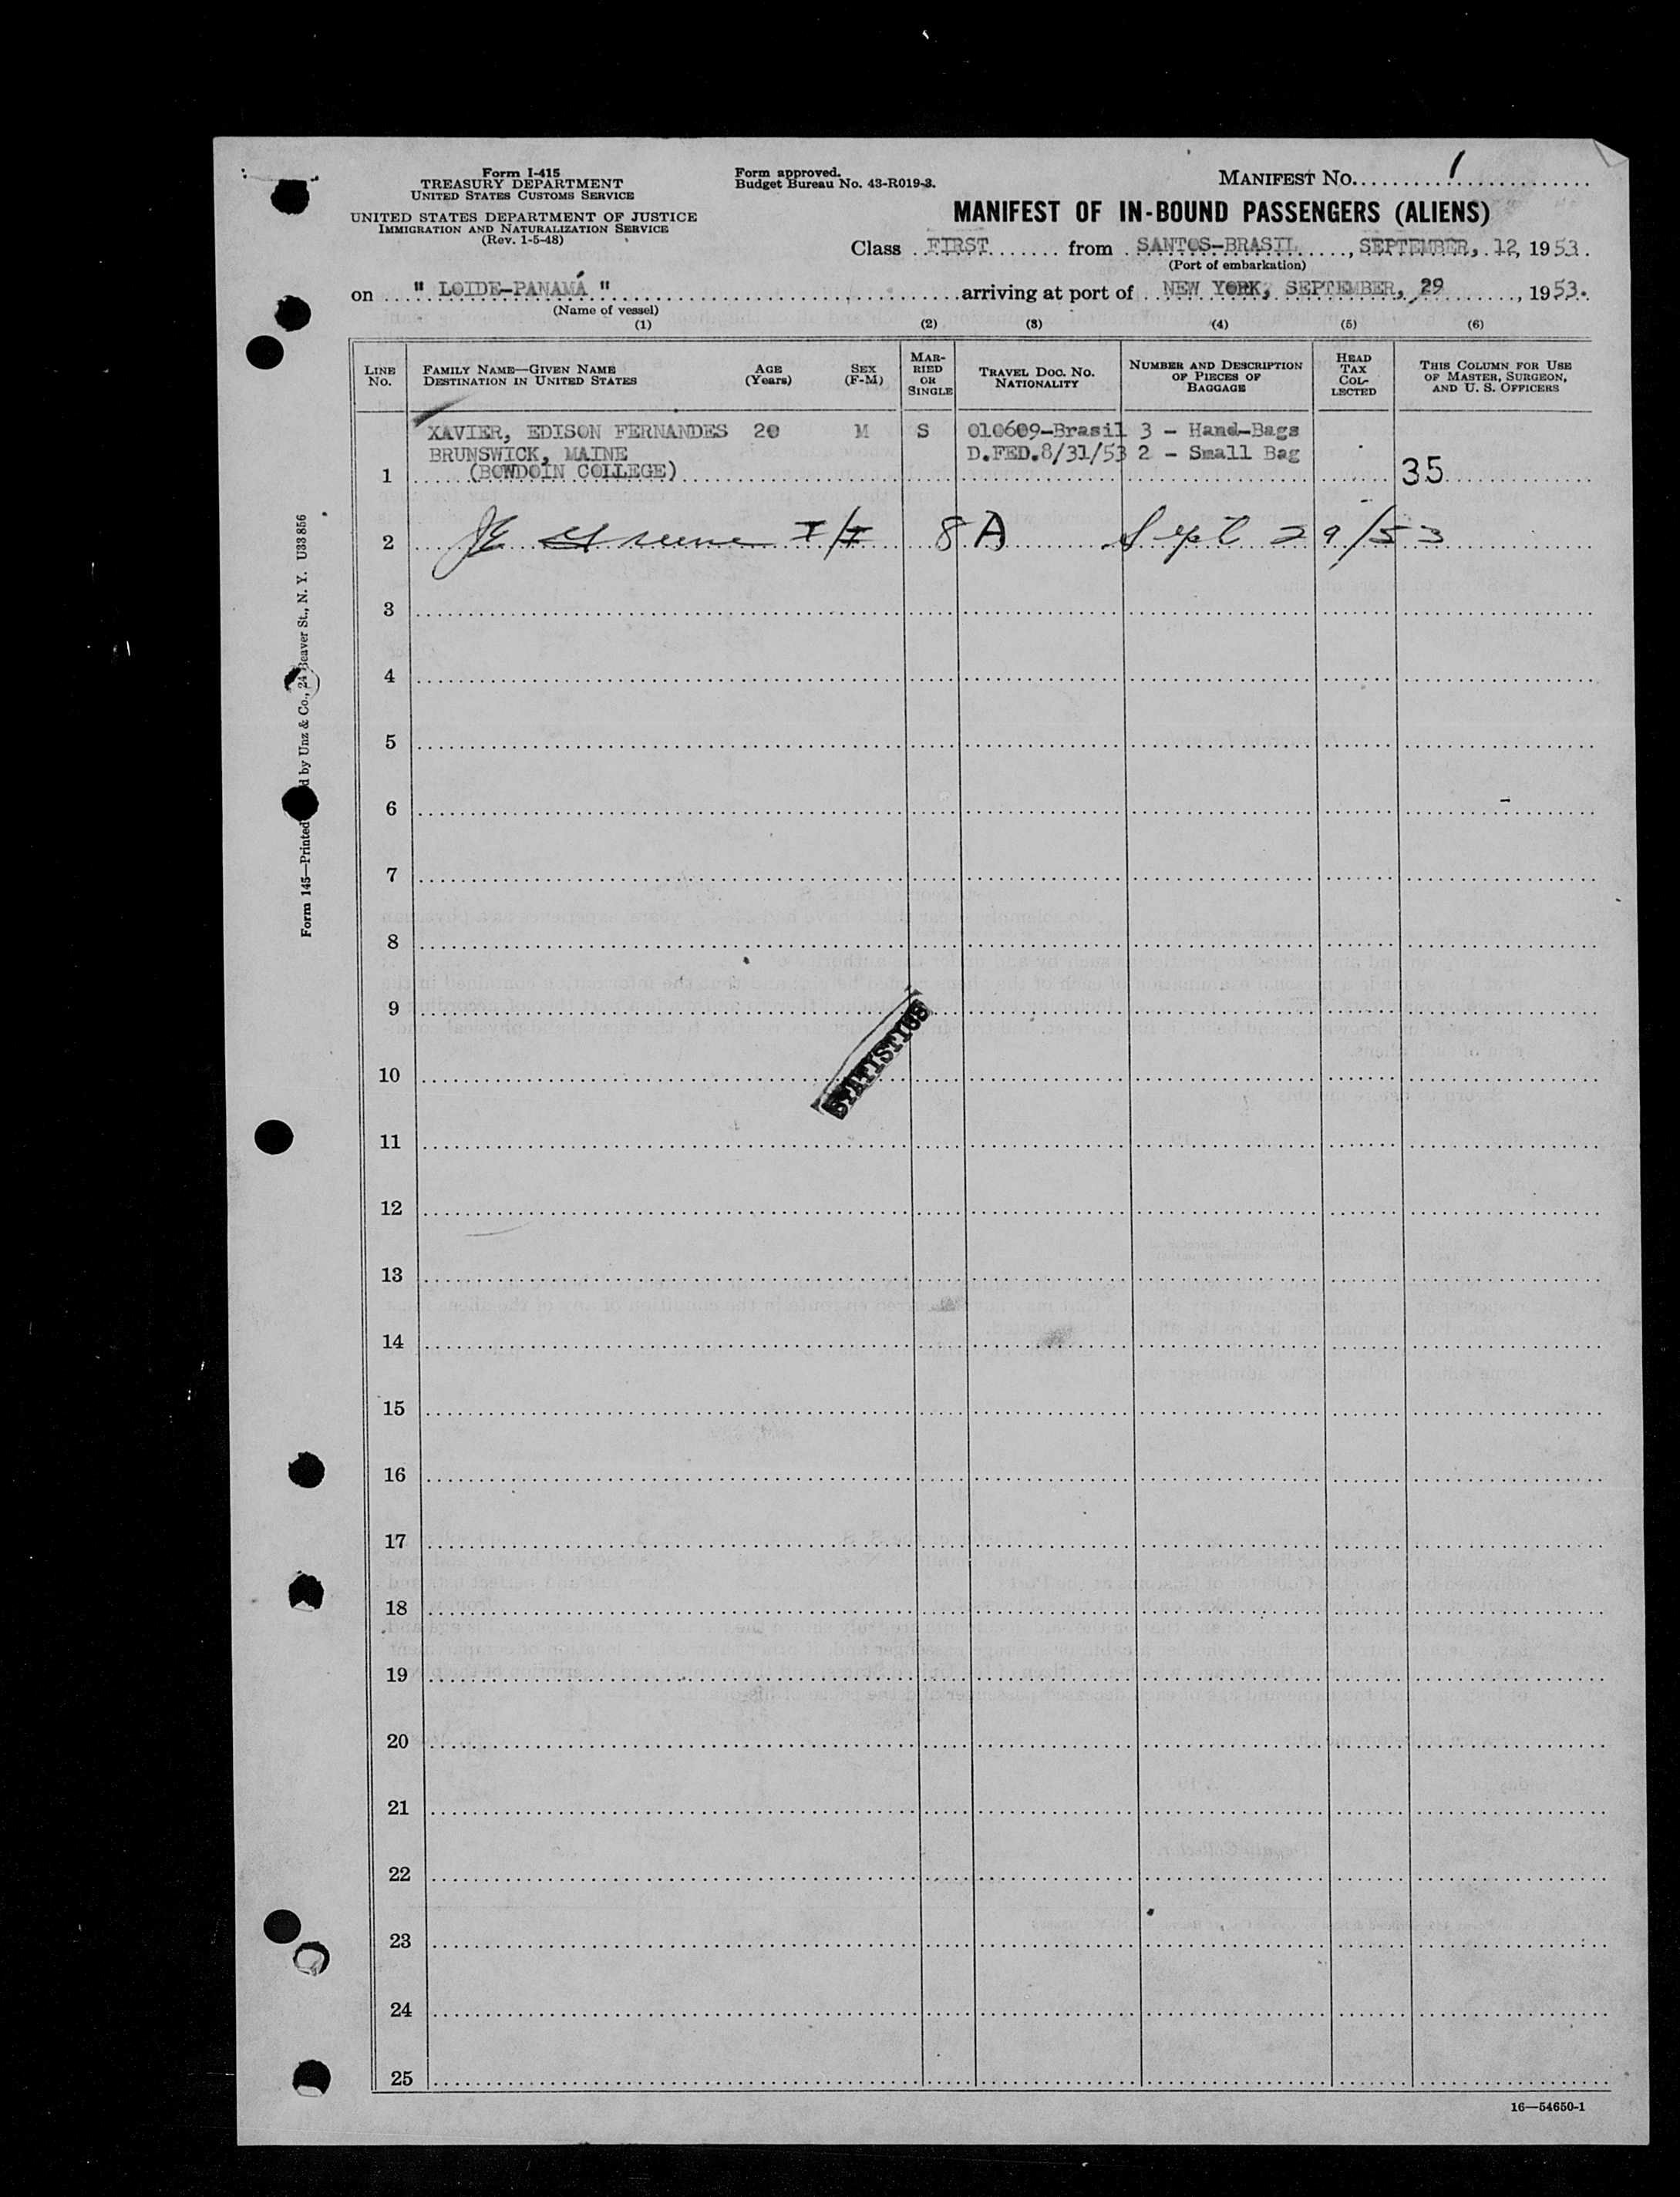 Form I-415
TREASURY DEPARTMENT
UNITED STATES CUSTOMS SERVICE
UNITED STATES DEPARTMENT OF JUSTICE
IMMIGRATION AND NATURALIZATION SERVICE
(Rev. 1-5-48)
Form approved.
Budget Bureau No. 43-R019-3.
MANIFEST NO. 1
MANIFEST OF IN-BOUND PASSENGERS (ALIENS)
Class FIRST from SANTOS-BRASIL, SEPTEMBER, 12, 1953.
(Port of embarkation)
on " LOIDE-PANAMÁ " arriving at port of NEW YORK, SEPTEMBER, 29, 1953.
(Name of vessel)
(1) (2) (3) (4) (5) (6)
LINE No. FAMILY NAME—GIVEN NAME DESTINATION IN UNITED STATES AGE (Years) SEX (F-M) MARRIED OR SINGLE TRAVEL DOC. NO. NATIONALITY NUMBER AND DESCRIPTION OF PIECES OF BAGGAGE HEAD TAX COLLECTED THIS COLUMN FOR USE OF MASTER, SURGEON, AND U. S. OFFICERS
XAVIER, EDISON FERNANDES 20 M S 010609-Brasil 3 - Hand-Bags
BRUNSWICK, MAINE D.FED.8/31/53 2 - Small Bag
1 (BOWDOIN COLLEGE) 35
2 I/I 8A Sept 29/53
3
4
5
6
7
8
9
STATISTICS
10
11
12
13
14
15
16
17
18
19
20
21
22
23
24
25
16—54650-1
Form 145—Printed by Unz & Co., 24 Beaver St., N. Y. U33856